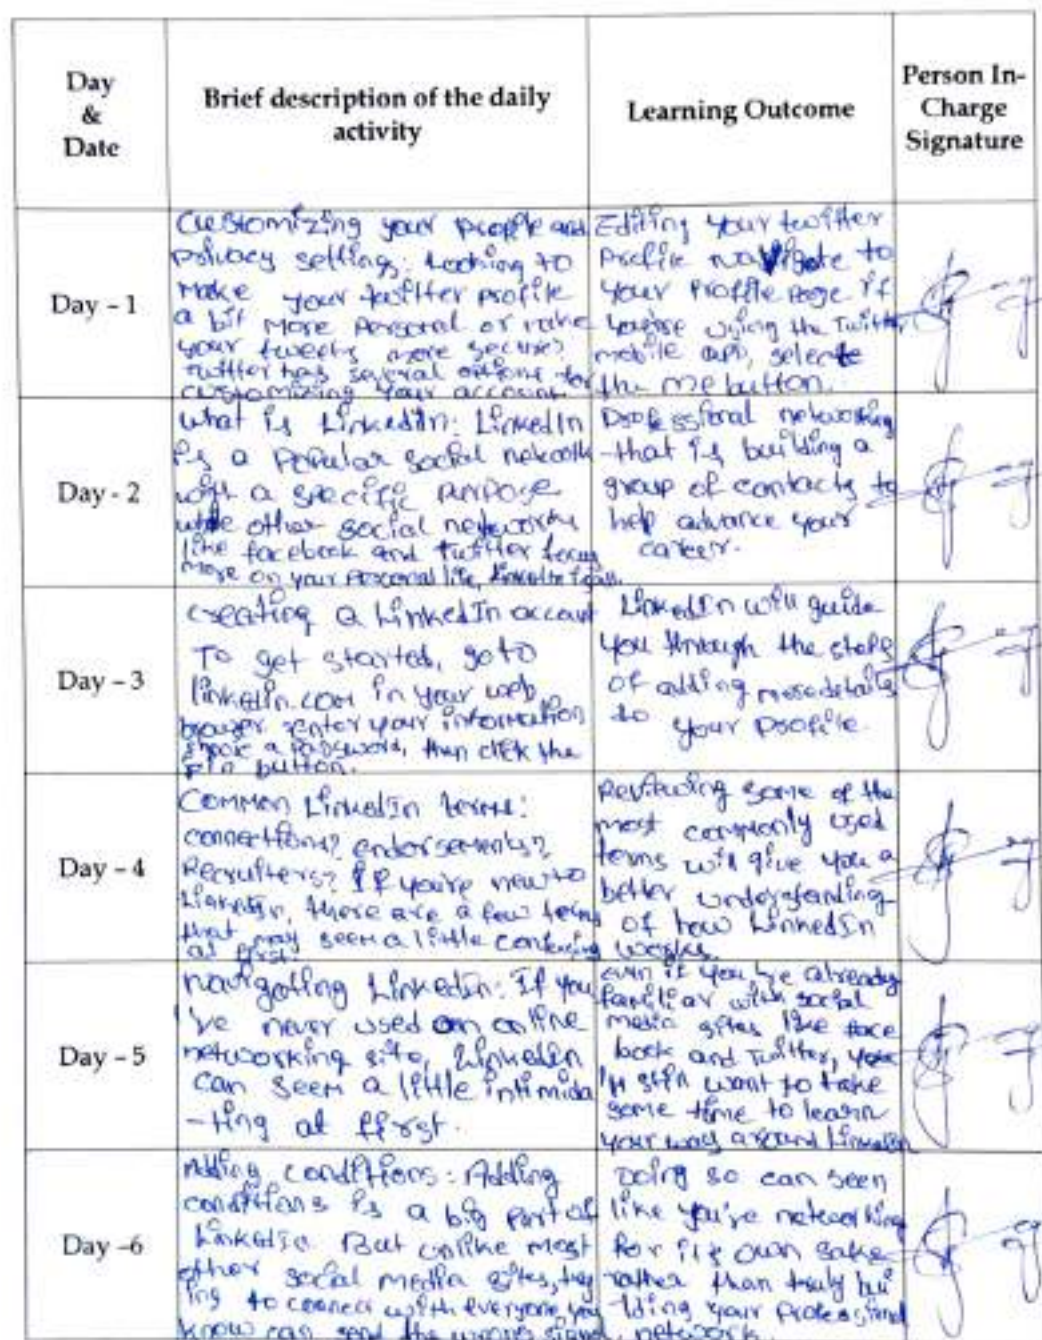 Day
&
Date
Brief description of the daily
activity
Learning Outcome
Person In-
Charge
Signature
Day - 1
Customizing your profile and
privacy settings: Looking to
make your twitter profile
a bit more personal or make
your tweets more secure?
twitter has several options for
customizing your account
Editing your twitter
profile navigate to
your profile page if
you're using the Twitter
mobile app, select
the me button.
Day - 2
what is LinkedIn: LinkedIn
is a popular social network
with a specific purpose
while other social networks
like facebook and twitter focus
more on your personal life, LinkedIn is
Professional networking
-that is building a
group of contacts to
help advance your
career.
Day - 3
creating a LinkedIn account
To get started, go to
linkedin.com in your web
browser. enter your information
a password, then click the
button.
LinkedIn will guide
you through the steps
of adding more details
to your profile.
Day - 4
Common LinkedIn terms:
connections? endorsements?
Recruiters? If you're new to
LinkedIn, there are a few terms
that may seem a little confusing
at first.
Reviewing some of the
most commonly used
terms will give you a
better understanding
of how LinkedIn
works.
Day - 5
navigating LinkedIn: If you
've never used an online
networking site, LinkedIn
can seem a little intimida
-ting at first.
even if you're already
familiar with social
media sites like face
book and Twitter, you
'll still want to take
some time to learn
your way around LinkedIn
Day -6
Adding conditions: Adding
conditions is a big part of
LinkedIn. But unlike most
other social media sites, try
ing to connect with everyone you
know can send the wrong signal.
Doing so can seen
like you're networking
for its own sake
rather than truly bui
lding your professional
network.